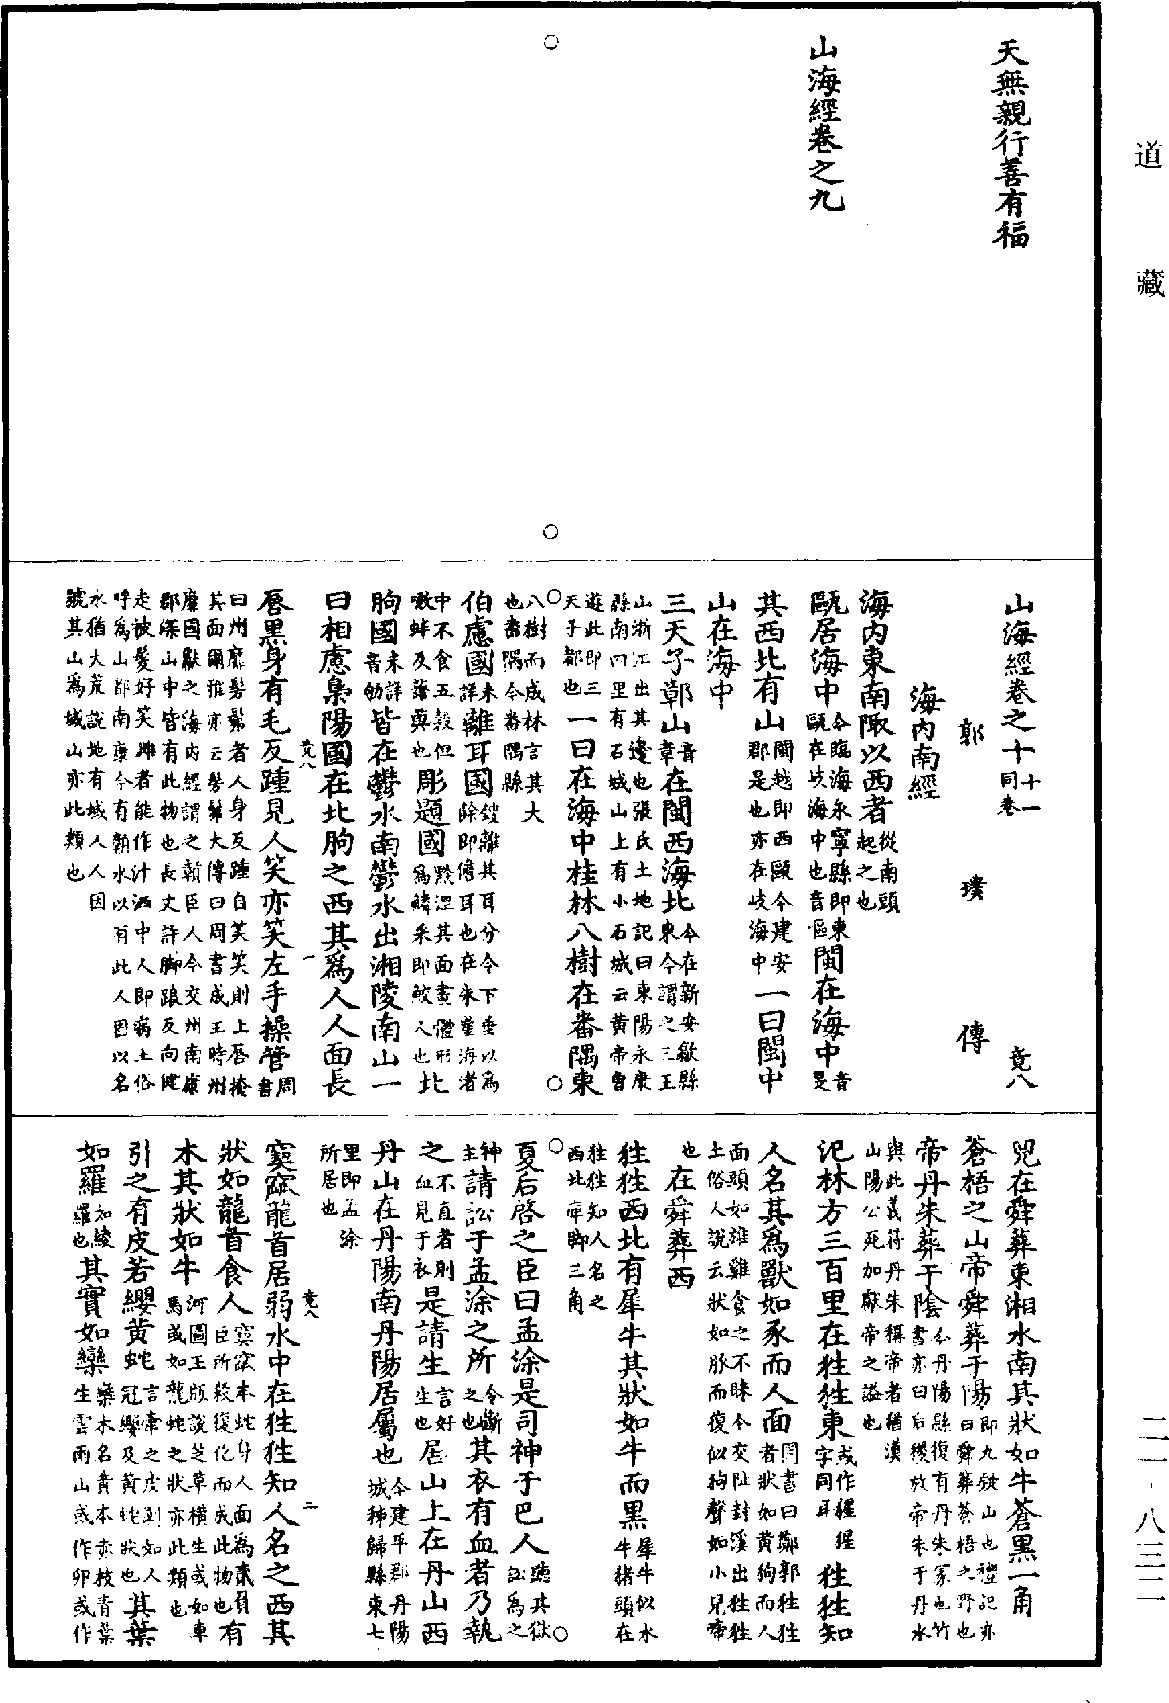 道藏
天無親行善有福
山海經卷之九
山海經卷之十 十一同卷 竟八
郭璞傳
海內南經
海內東南陬以西者 從南頭起之也
甌居海中 今臨海永寧縣即東甌在岐海中也音嘔 閩在海中 音旻
其西北有山 閩越即西甌今建安郡是也亦在岐海中 一曰閩中
山在海中
三天子鄣山 音章 在閩西海北 今在新安歙縣東今謂之三王
山浙江出其邊也張氏土地記曰東陽永康縣南四里有石城山上有小石城云黃帝曾
遊此即三天子都也 一曰在海中桂林八樹在番隅東
八樹而成林言其大也番隅今番隅縣
伯慮國 未詳 離耳國 鎪離其耳分令下垂以為飾即儋耳也在朱崖海渚
中不食五穀但噉蚌及藷藇也 彫題國 黥涅其面畫體形為鱗采即鮫人也 北
朐國 音劬未詳 皆在鬱水南鬱水出湘陵南山一
曰相慮梟陽國在北朐之西其為人人面長
脣黑身有毛反踵見人笑亦笑左手操管 周書
曰州靡髴髴者人身反踵自笑笑則上脣掩其面爾雅亦云髴髴大傳曰周書成王時州
靡國獻之海內經謂之贛巨人今交州南康郡深山中皆有此物也長丈許腳跟反向健
走被髮好笑雌者能作汁洒中人即病土俗呼為山都南康今有贛水以有此人因以名
水猶大荒說地有蜮人人因號其山為蜮山亦此類也
竟八 一
兕在舜葬東湘水南其狀如牛蒼黑一角
蒼梧之山帝舜葬于陽 即九疑山也禮記亦曰舜葬蒼梧之野也
帝丹朱葬于陰 今丹陽縣復有丹朱冢也竹書亦曰后稷放帝朱于丹水
與此義符丹朱稱帝者猶漢山陽公死加獻帝之謚也
氾林方三百里在狌狌東 或作猩猩字同耳 狌狌知
人名其為獸如豕而人面 周書曰鄭郭狌狌者狀如黃狗而人
面頭如雄雞食之不眯今交阯封溪出狌狌土俗人說云狀如豚而復似狗聲如小兒啼
也 在舜葬西
狌狌西北有犀牛其狀如牛而黑 犀牛似水牛豬頭在
狌狌知人名之西北庳腳三角
夏后啟之臣曰孟涂是司神于巴人 聽其獄訟為之
神主 請訟于孟涂之所 令斷之也 其衣有血者乃執
之 不直者則血見于衣 是請生 言好生也 居山上在丹山西
丹山在丹陽南丹陽居屬也 今建平郡丹陽城秭歸縣東七
里即孟涂所居也
窫窳龍首居弱水中在狌狌知人名之西其
狀如龍首食人 窫窳本蛇身人面為貳負臣所殺復化而成此物也 有
木其狀如牛 河圖玉版說芝草橫生或如車馬或如龍蛇之狀亦此類也
引之有皮若纓黃蛇 言牽之皮剝如人冠纓及黃蛇狀也 其葉
如羅 如綾羅也 其實如欒 欒木名黃本赤枝青葉生雲雨山或作卵或作
竟八 二
二一·八三二